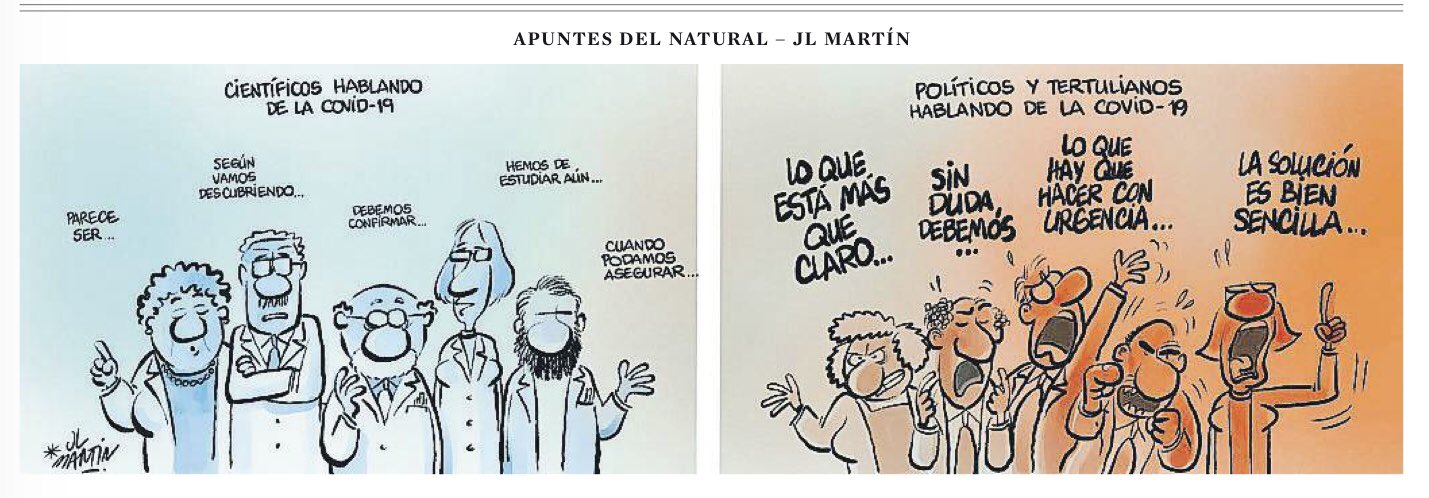 APUNTES DEL NATURAL – JL MARTÍN
CIENTÍFICOS HABLANDO
DE LA COVID-19
PARECE
SER...
SEGÚN
VAMOS
DESCUBRIENDO...
DEBEMOS
CONFIRMAR...
HEMOS DE
ESTUDIAR AÚN...
CUANDO
PODAMOS
ASEGURAR...
*JL
MARTÍN
POLÍTICOS Y TERTULIANOS
HABLANDO DE LA COVID-19
LO QUE
ESTÁ MÁS
QUE
CLARO...
SIN
DUDA,
DEBEMOS
...
LO QUE
HAY QUE
HACER CON
URGENCIA...
LA SOLUCIÓN
ES BIEN
SENCILLA...